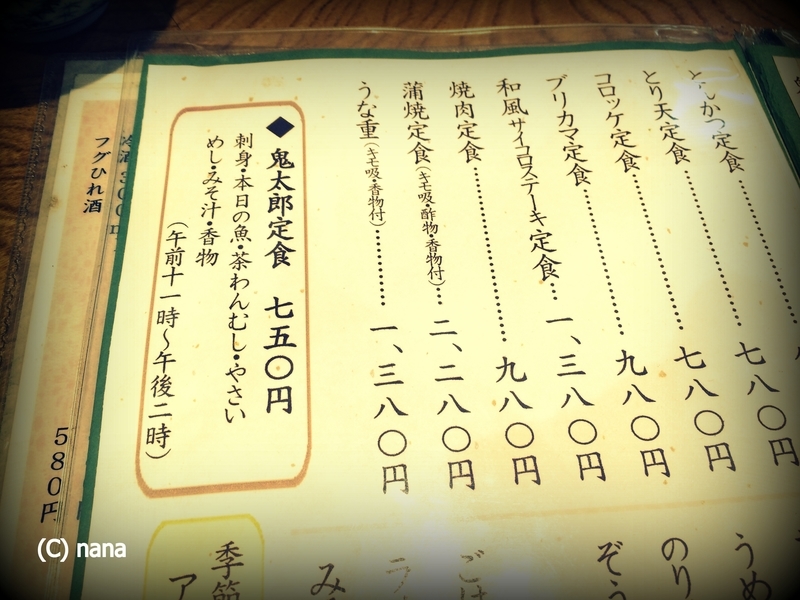 とんかつ定食
とり天定食 七八〇円
コロッケ定食 七八〇円
ブリカマ定食 九八〇円
和風サイコロステーキ定食 一、三八〇円
焼肉定食 九八〇円
蒲焼定食(キモ吸・酢物・香物付) 二、二八〇円
うな重(キモ吸・香物付) 一、三八〇円
◆鬼太郎定食 七五〇円
刺身・本日の魚・茶わんむし・やさい
めし・みそ汁・香物
(午前十一時～午後二時)
うめ
のり
ぞう
ごは
み
季節
ア
フグひれ酒 580円
(C) nana